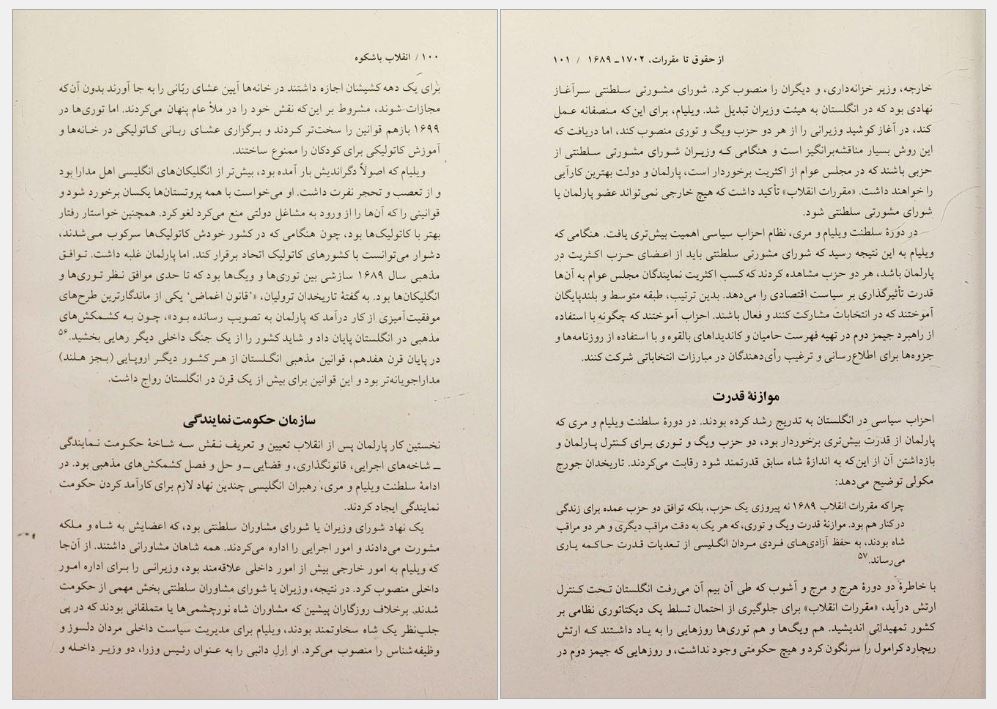 ۱۰۰ / انقلاب باشکوه
برای یک دهه کشیشان اجازه داشتند در خانه‌ها آیین عشای ربّانی را به جا آورند بدون آن‌که
مجازات شوند، مشروط بر این‌که نقش خود را در ملأ عام پنهان می‌کردند. اما توری‌ها در
۱۶۹۹ بازهم قوانین را سخت‌تر کردند و برگزاری عشای ربانی کاتولیکی در خانه‌ها و
آموزش کاتولیکی برای کودکان را ممنوع ساختند.
ویلیام که اصولاً دگراندیش بار آمده بود، بیش‌تر از انگلیکان‌های انگلیسی اهل مدارا بود
و از تعصب و تحجر نفرت داشت. او می‌خواست با همه پروتستان‌ها یکسان برخورد شود و
قوانینی را که آن‌ها را از ورود به مشاغل دولتی منع می‌کرد لغو کرد. همچنین خواستار رفتار
بهتر با کاتولیک‌ها بود، چون هنگامی که در کشور خودش کاتولیک‌ها سرکوب می‌شدند،
دشوار می‌توانست با کشورهای کاتولیک اتحاد برقرار کند. اما پارلمان غلبه داشت. توافق
مذهبی سال ۱۶۸۹ سازشی بین توری‌ها و ویگ‌ها بود که تا حدی موافق نظر توری‌ها و
انگلیکان‌ها بود. به گفتهٔ تاریخدان ترولیان، «'قانون اغماض' یکی از ماندگارترین طرح‌های
موفقیت‌آمیزی از کار درآمد که پارلمان به تصویب رسانده بود»، چون به کشمکش‌های
مذهبی در انگلستان پایان داد و شاید کشور را از یک جنگ داخلی دیگر رهایی بخشید.۵۶
در پایان قرن هفدهم، قوانین مذهبی انگلستان از هر کشور دیگر اروپایی (بجز هلند)
مداراجویانه‌تر بود و این قوانین برای بیش از یک قرن در انگلستان رواج داشت.
سازمان حکومت نمایندگی
نخستین کار پارلمان پس از انقلاب تعیین و تعریف نقش سه شاخهٔ حکومت نمایندگی
ــ شاخه‌های اجرایی، قانونگذاری، و قضایی ــ و حل و فصل کشمکش‌های مذهبی بود. در
ادامهٔ سلطنت ویلیام و مری، رهبران انگلیسی چندین نهاد لازم برای کارآمد کردن حکومت
نمایندگی ایجاد کردند.
یک نهاد شورای وزیران یا شورای مشاوران سلطنتی بود، که اعضایش به شاه و ملکه
مشورت می‌دادند و امور اجرایی را اداره می‌کردند. همه شاهان مشاورانی داشتند. از آن‌جا
که ویلیام به امور خارجی بیش از امور داخلی علاقه‌مند بود، وزیرانی را برای اداره امور
داخلی منصوب کرد. در نتیجه، وزیران یا شورای مشاوران سلطنتی بخش مهمی از حکومت
شدند. برخلاف روزگاران پیشین که مشاوران شاه نورچشمی‌ها یا متملقانی بودند که در پی
جلب‌نظر یک شاه سخاوتمند بودند، ویلیام برای مدیریت سیاست داخلی مردان دلسوز و
وظیفه‌شناس را منصوب می‌کرد. او ارل دانبی را به عنوان رئیس وزرا، دو وزیر داخله و
از حقوق تا مقررات، ۱۷۰۲ ـ ۱۶۸۹ / ۱۰۱
خارجه، وزیر خزانه‌داری، و دیگران را منصوب کرد. شورای مشورتی سلطنتی سرآغاز
نهادی بود که در انگلستان به هیئت وزیران تبدیل شد. ویلیام، برای این‌که منصفانه عمل
کند، در آغاز کوشید وزیرانی را از هر دو حزب ویگ و توری منصوب کند، اما دریافت که
این روش بسیار مناقشه‌برانگیز است و هنگامی که وزیران شورای مشورتی سلطنتی از
حزبی باشند که در مجلس عوام از اکثریت برخوردار است، پارلمان و دولت بهترین کارآیی
را خواهند داشت. «مقررات انقلاب» تأکید داشت که هیچ خارجی نمی‌تواند عضو پارلمان یا
شورای مشورتی سلطنتی شود.
در دورهٔ سلطنت ویلیام و مری، نظام احزاب سیاسی اهمیت بیش‌تری یافت. هنگامی که
ویلیام به این نتیجه رسید که شورای مشورتی سلطنتی باید از اعضای حزب اکثریت در
پارلمان باشد، هر دو حزب مشاهده کردند که کسب اکثریت نمایندگان مجلس عوام به آن‌ها
قدرت تأثیرگذاری بر سیاست اقتصادی را می‌دهد. بدین ترتیب، طبقه متوسط و بلندپایگان
آموختند که در انتخابات مشارکت کنند و فعال باشند. احزاب آموختند که چگونه با استفاده
از راهبرد جیمز دوم در تهیه فهرست حامیان و کاندیداهای بالقوه و با استفاده از روزنامه‌ها و
جزوه‌ها برای اطلاع‌رسانی و ترغیب رأی‌دهندگان در مبارزات انتخاباتی شرکت کنند.
موازنهٔ قدرت
احزاب سیاسی در انگلستان به تدریج رشد کرده بودند. در دورهٔ سلطنت ویلیام و مری که
پارلمان از قدرت بیش‌تری برخوردار بود، دو حزب ویگ و توری برای کنترل پارلمان و
بازداشتن آن از این‌که به اندازهٔ شاه سابق قدرتمند شود رقابت می‌کردند. تاریخدان جورج
مکولی توضیح می‌دهد:
چرا که مقررات انقلاب ۱۶۸۹ نه پیروزی یک حزب، بلکه توافق دو حزب عمده برای زندگی
در کنار هم بود. موازنهٔ قدرت ویگ و توری، که هر یک به دقت مراقب دیگری و هر دو مراقب
شاه بودند، به حفظ آزادی‌های فردی مردان انگلیسی از تعدیات قدرت حاکمه یاری
می‌رساند.۵۷
با خاطرهٔ دو دورهٔ هرج و مرج و آشوب که طی آن بیم آن می‌رفت انگلستان تحت کنترل
ارتش درآید، «مقررات انقلاب» برای جلوگیری از احتمال تسلط یک دیکتاتوری نظامی بر
کشور تمهیداتی اندیشید. هم ویگ‌ها و هم توری‌ها روزهایی را به یاد داشتند که ارتش
ریچارد کرامول را سرنگون کرد و هیچ حکومتی وجود نداشت، و روزهایی که جیمز دوم در